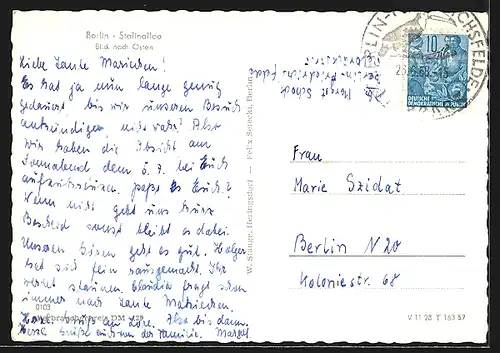 Berlin - Stalinallee
Blick nach Osten
Liebe Tante Mariechen!
Es hat ja nun lange genug
gedauert bis wir unseren Besuch
ankündigen, nicht wahr? Also
wir haben die Absicht am
Sonnabend dem 5.7. bei Euch
aufzukreuzen, paßt es Euch?
Wenn nicht gebt uns kurz
Bescheid sonst bleibt es dabei
Unseren bösen geht es gut. Holger
hat sich fein rausgemacht. Ihr
werdet staunen. Claudia fragt schon
immer nach Tante Mariechen.
Grüße an Lore. Also bis dann.
Herzl. Grüße auch von der Familie. Margot
0103
DM
W. Stange, Heringsdorf — Felix Setecki, Berlin
Margot
Berlin Friedrichsfelde
BERLIN-FRIEDRICHSFELDE
10
DEUTSCHE
DEMOKRATISCHE REPUBLIK
Frau
Marie Szidat
Berlin N 20
Koloniestr. 68
V 11 28 T 163 57